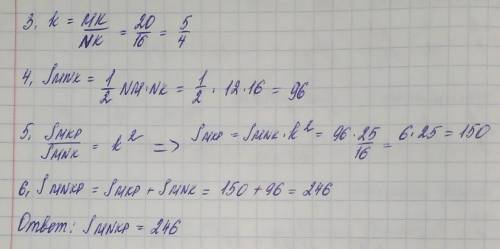 3, k = MK/NK = 20/16 = 5/4
4, SMNK = 1/2 NM·NK = 1/2 · 12·16 = 96
5, SMKP/SMNK = k² => SMKP = SMNK·k² = 96·25/16 = 6·25 = 150
6, SMNKP = SMKP + SMNK = 150 + 96 = 246
Ответ: SMNKP = 246